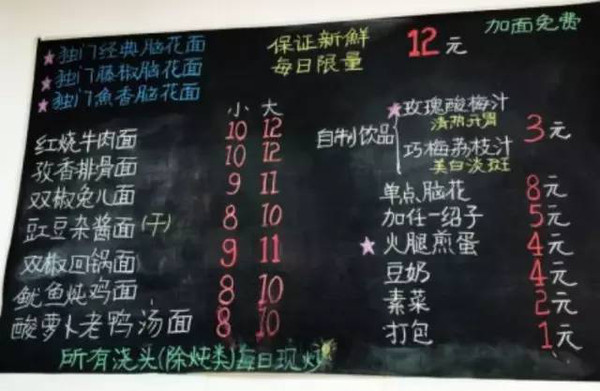 ★独门经典脑花面
★独门藤椒脑花面
★独门魚香脑花面
保证新鲜
每日限量
12元
加面免费
小 大
红烧牛肉面 10 12
孜香排骨面 10 12
双椒兔儿面 9 11
豇豆杂酱面(干) 8 10
双椒回锅面 9 11
鱿鱼炖鸡面 8 10
酸萝卜老鸭汤面 8 10
自制饮品
★玫瑰酸梅汁
清热开胃
巧梅荔枝汁
美白淡斑
3元
单点脑花 8元
加任一绍子 5元
★火腿煎蛋 4元
豆奶 4元
素菜 2元
打包 1元
所有浇头(除炖类)每日现炒